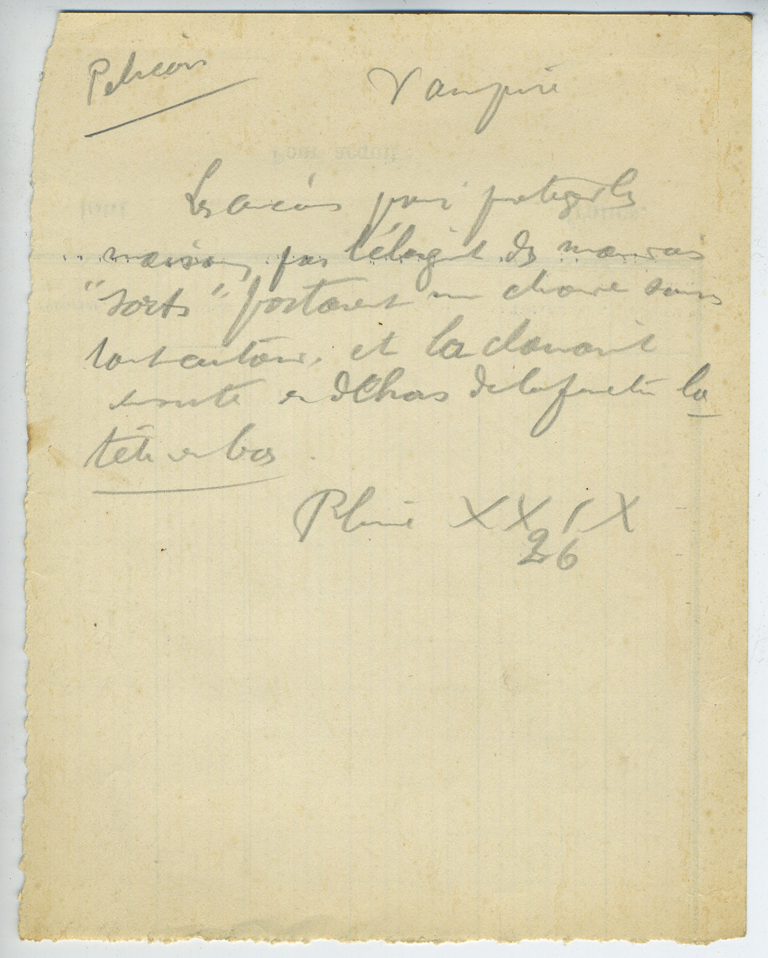 Pelican
Vampire
Les anciens pour proteger les
maisons par l'éloignt des mauvais
"sorts" portaient une chauve souris
tout autour, et la clouait
ensuite en dehors de la fenetre la
tête en bas.
Pline XXIX
26
Pour acquit